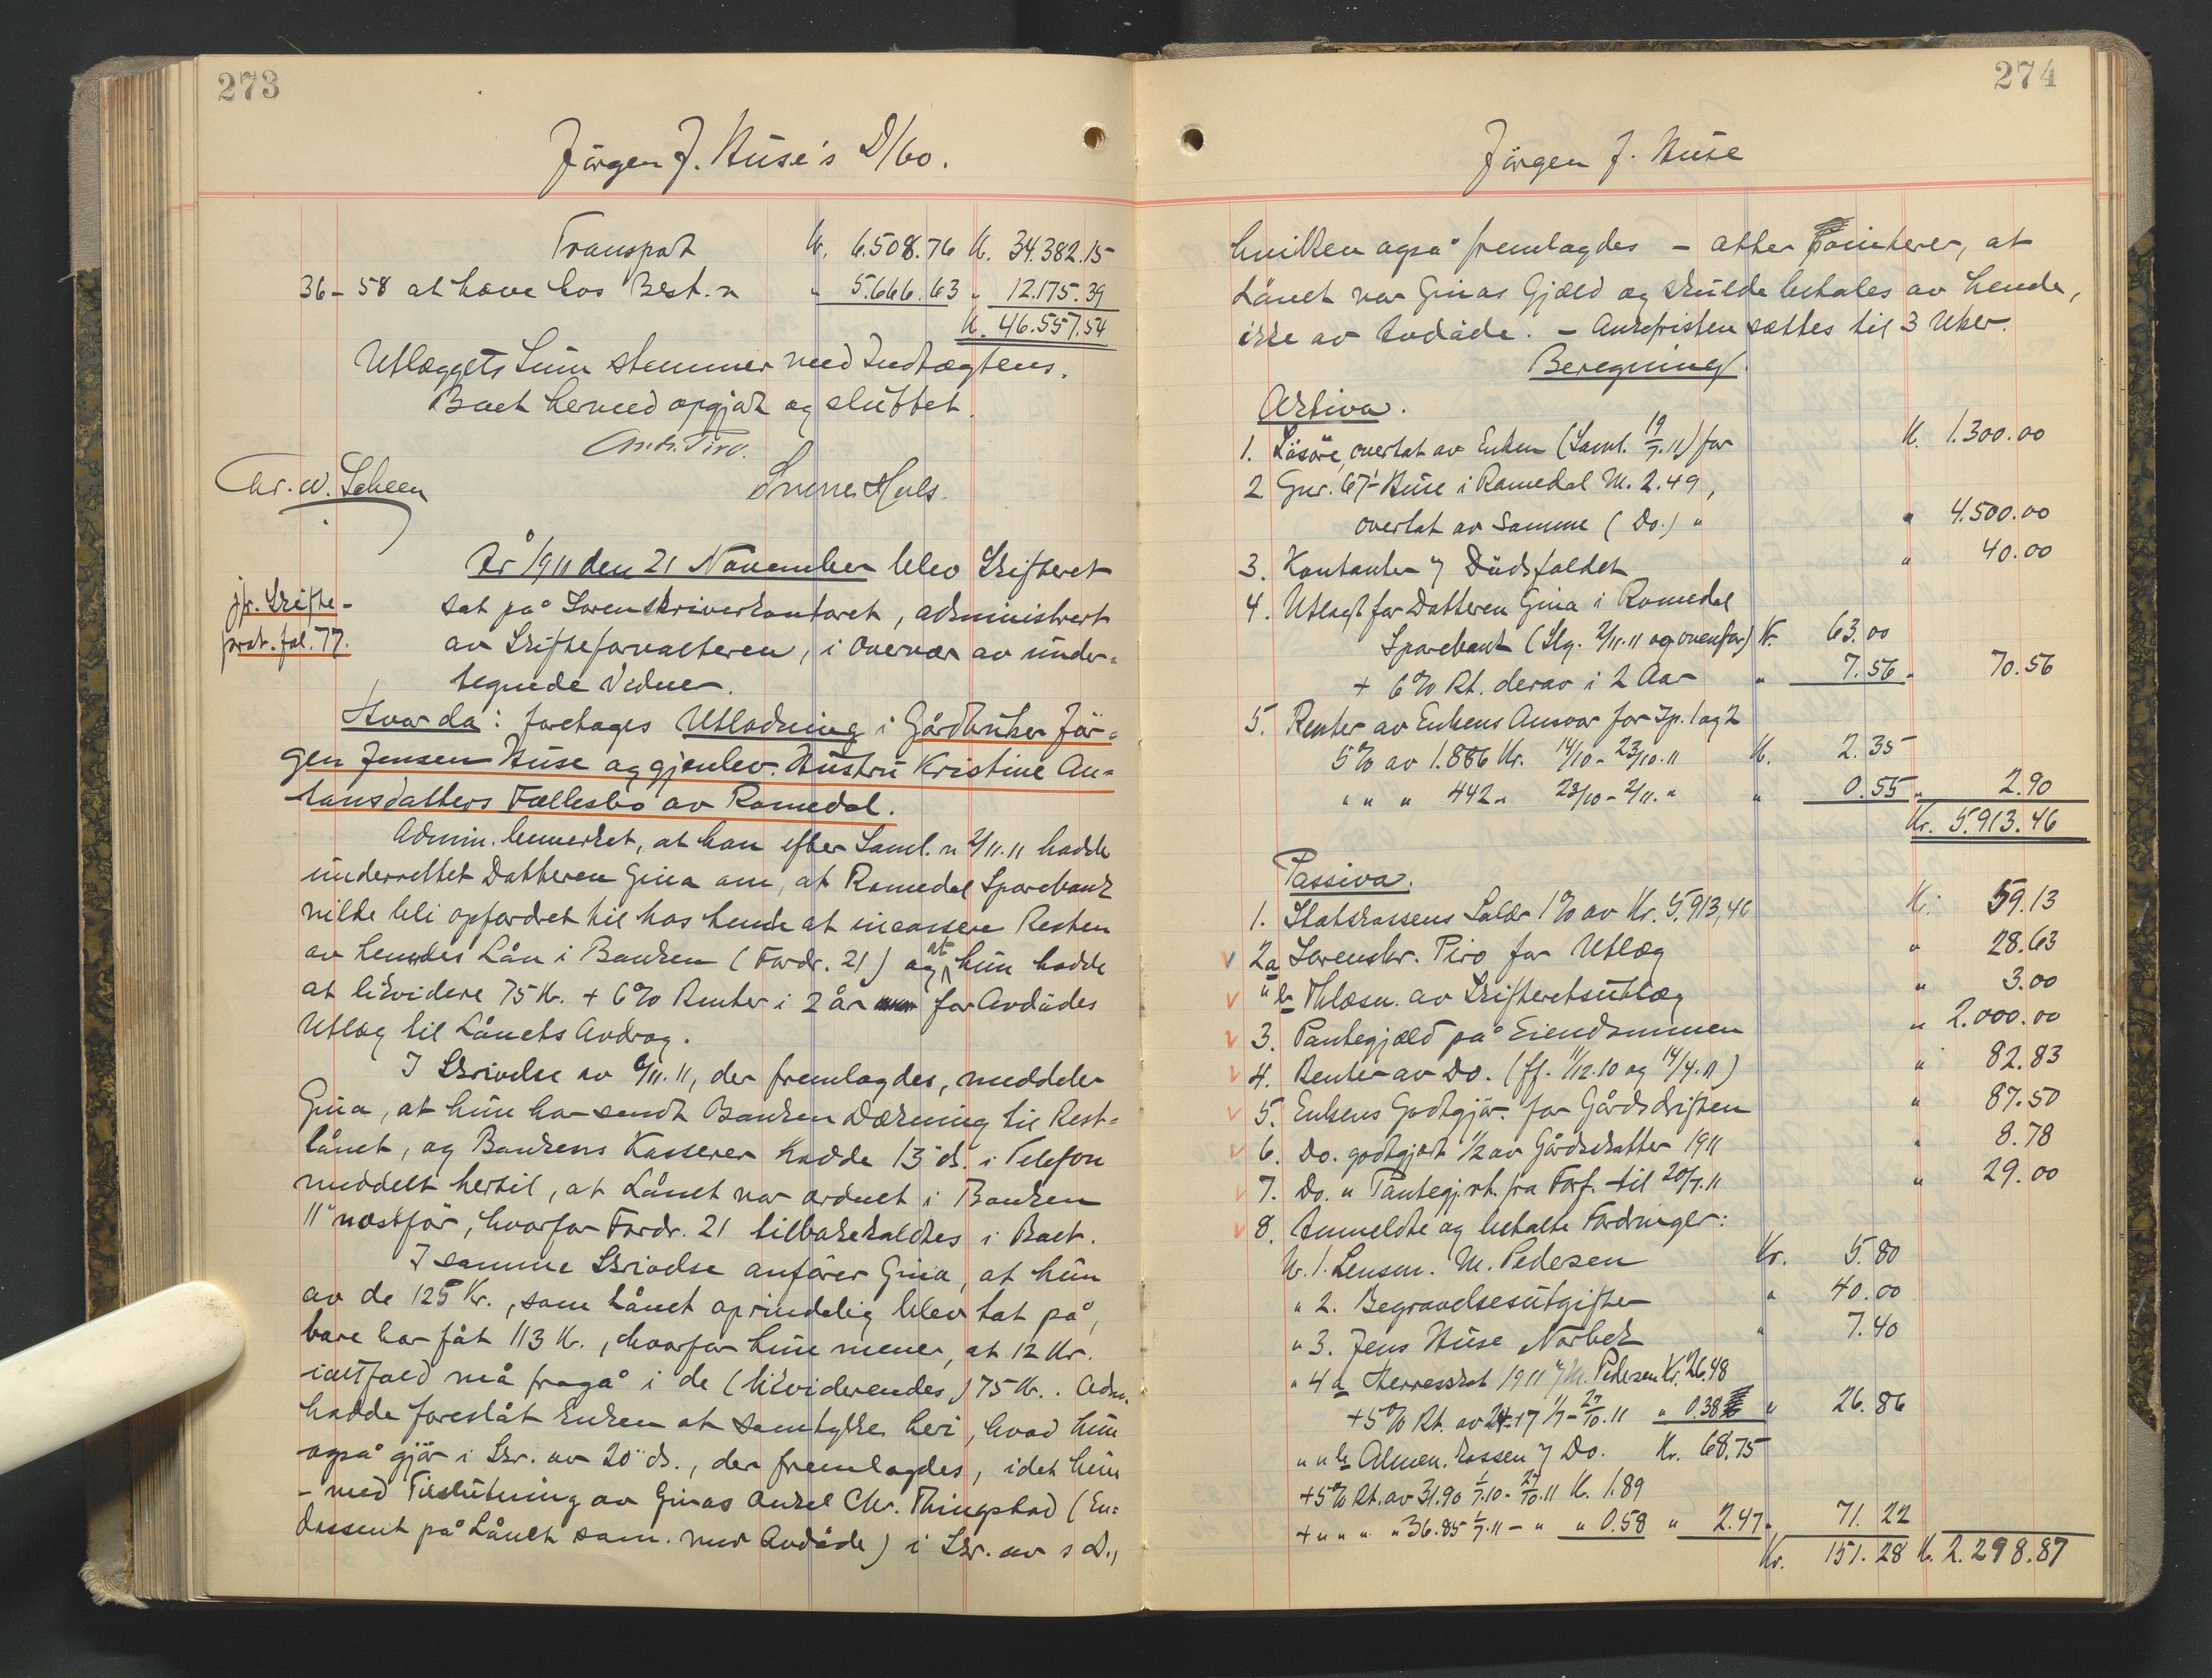 273
Jörgen J. Huse's D/bo.
Transport Kr. 6.508.76 Kr. 34.382.15
36-58 at have hos Best.n " 5.666.63 " 12.175.39
Kr. 46.557.54
Utlæggets Sum stemmer med Indtægtens.
Boet hermed opgjort og sluttet.
Andr. Piro.
Chr. W. Scheen
År 1911 den 21 November blev Skifteret
jfr. Skifte-
prot. fol. 77.
sat på Sorenskriverkontoret, administrert
av Skifteforvalteren, i Overvær av under-
tegnede Vidner.
Hvor da: foretages Utlodning i Gårdbruker Jör-
gen Jensen Huse og gjenlev. Hustru Kristine An-
tonsdatters Fællesbo av Romedal.
Admin. bemerket, at han efter Saml. n 2/11.11 hadde
underrettet Datteren Gina om, at Romedal Sparebank
vilde bli opfordret til hos hende at incassere Resten
av hendes Lån i Banken (Fordr. 21) og at hun hadde
at likvidere 75 Kr. + 6% Renter i 2 år for Avdödes
Utlæg til Lånets Avdrag.
I Skrivelse av 6/11.11, der fremlagdes, meddeler
Gina, at hun har sendt Banken Dækning til Rest-
lånet, og Bankens Kasserer hadde 13 ds. i Telefon
meddelt hertil, at Lånet var ordnet i Banken
11 næstför, hvorfor Fordr. 21 tilbakekaldtes i Boet.
I samme Skrivelse anförer Gina, at hun
av de 125 Kr., som Lånet oprindelig blev tat på,
bare har fåt 113 Kr., hvorfor hun mener, at 12 Kr.
ialtfald må fragå i de (likviderendes) 75 Kr.. Adm.
hadde foreslåt Enken at samtykke heri, hvad hun
også gjör i Skr. av 20 ds., der fremlagdes, idet hun
- med Tilslutning av Ginas Onkel Chr. Thingstad (En-
dossent på Lånet sam. med Avdöde) i Skr. av s D.,
274
Jörgen J. Huse
hvilken også fremlagdes - atter pointerer, at
Lånet var Ginas Gjæld og skulde betales av hende,
ikke av Avdöde. - Ankefristen sættes til 3 Uker.
Beregning.
Aktiva.
1. Lösöre, overtat av Enken (Saml. 19/7.11) for Kr. 1.300.00
2. Gnr. 67 1 Huse i Romedal M. 2.49,
overtat av Samme (Do.) " " 4.500.00
3. Kontanter v Dödsfaldet " 40.00
4. Utlagt for Datteren Gina i Romedal
Sparebank (Slg. 2/11.11 og ovenfor) Kr. 63.00
+ 6% Rt. derav i 2 Aar " 7.56 " 70.56
5. Renter av Enkens Ansvar for Ip. 1 og 2
5% av 1.886 Kr. 14/10 - 23/10.11 Kr. 2.35
" " " 442 " 23/10 - 2/11. " " 0.55 " 2.90
Kr. 5.913.46
Passiva.
1. Statskassens Saldr 1% av Kr. 5.913,46 Kr. 59.13
2a Sorenskr. Piro for Utlæg " 28.63
" b Thlæsn. av Skifteretsutlæg " 3.00
3. Pantegjæld på Eiendommen " 2.000.00
4. Renter av Do. (ff. 11/12.10 og 14/4.11) " 82.83
5. Enkens Godtgjör. for Gårdsdriften " 87.50
6. Do. godtgjort 1/2 av Gårdsskatter 1911 " 8.78
7. Do. " Pantegj.rt. fra Forf. til 20/7.11 " 29.00
8. Anmeldte og betalte Fordringer:
Nr. 1. Lensm. M. Pedersen Kr. 5.80
" 2. Begravelsesutgifter " 40.00
" 3. Jens Huse Norbek " 7.40
" 4 a Herresskat 1911 v/M. Pedersen Kr. 26.48
+5% Rt. av 24.17 1/7 - 27/10.11 " 0.38 " 26.86
" " b Almen. kassen v Do. Kr. 68.75
+5% Rt. av 31.90 1/7.10 - 27/10.11 Kr. 1.89
+ " " " " 36.85 1/7.11 - " " 0.58 " 2.47 " 71.22
Kr. 151.28 Kr. 2.298.87